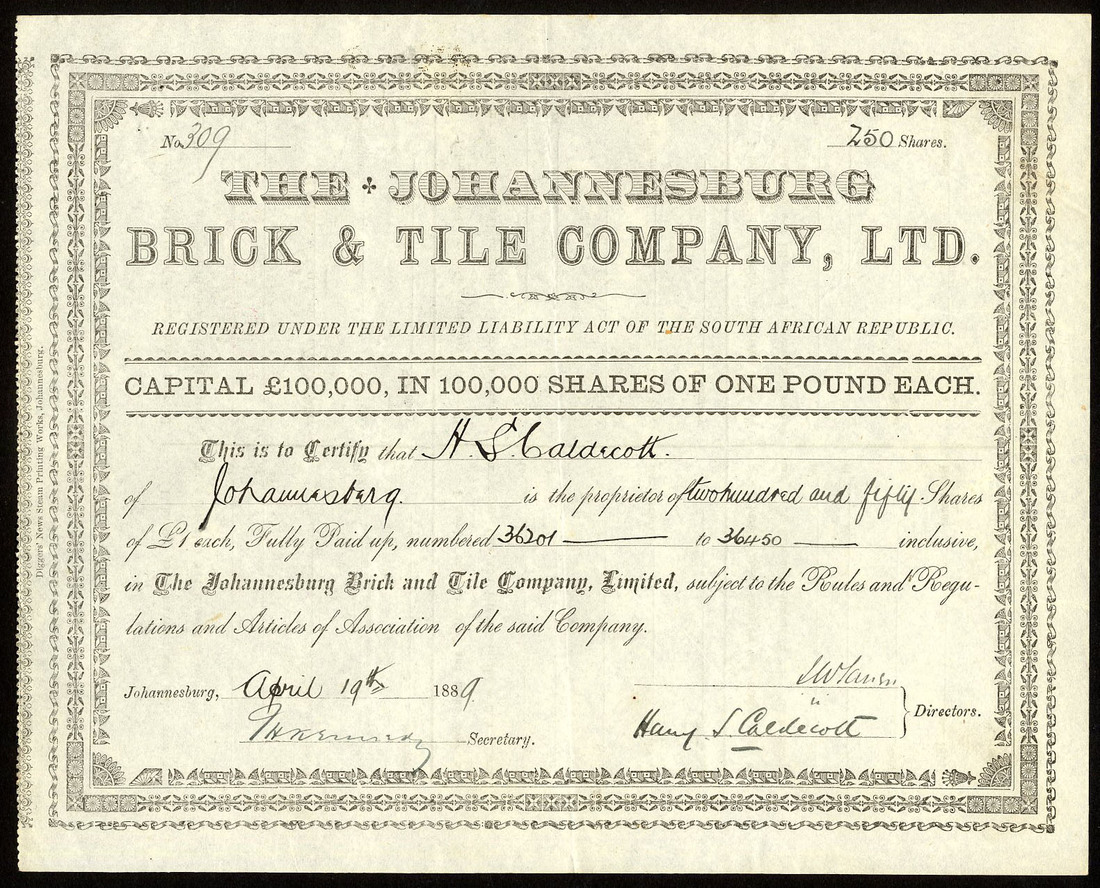 No. 309 250 Shares.
THE JOHANNESBURG
BRICK & TILE COMPANY, LTD.
REGISTERED UNDER THE LIMITED LIABILITY ACT OF THE SOUTH AFRICAN REPUBLIC.
CAPITAL £100,000, IN 100,000 SHARES OF ONE POUND EACH.
This is to Certify that H. S. Caldecott.
of Johannesburg. is the proprietor of two hundred and fifty Shares
of £1 each, Fully Paid up, numbered 36201 to 36450 inclusive,
in The Johannesburg Brick and Tile Company, Limited, subject to the Rules and Regu-
lations and Articles of Association of the said Company.
Johannesburg, April 19th 1889.
Harry S. Caldecott Directors.
Secretary.
Diggers' News Steam Printing Works, Johannesburg.